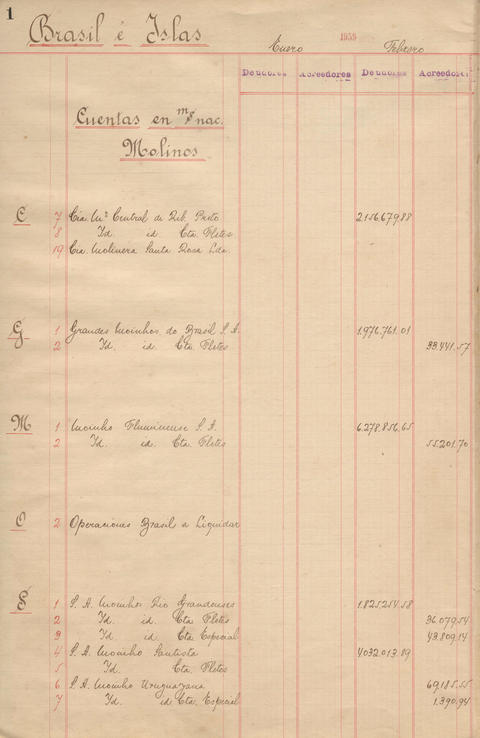 1
Brasil é Islas
Enero 1959 Febrero
Deudores Acreedores Deudores Acreedores
Cuentas en m$nac.
Molinos
C 7 Cía. Ma. Central de Rib. Preto 2.156.679.88
8 Id. id. Cta. Fletes
19 Cía. Molinera Santa Rosa Lda.
G 1 Grandes Moinhos do Brasil S. A. 1.976.761.01
2 Id. id. Cta. Fletes 33.441.57
M 1 Moinho Fluminense S. A. 6.278.856.65
2 Id. id. Cta. Fletes 55.201.70
O 2 Operaciones Brasil a Liquidar
S 1 S. A. Moinhos Rio Grandenses 1.825.254.58
2 Id. id. Cta. Fletes 36.079.54
3 Id. id. Cta. Especial 43.809.14
4 S. A. Moinho Santista 4032013.89
5 Id. Cta. Fletes
6 S. A. Moinho Uruguayana 69.185.55
7 Id. id. Cta. Especial 1.390.94